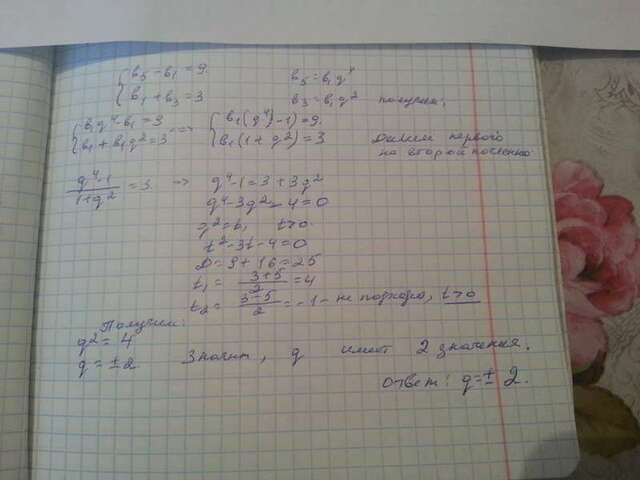 { b₅ - b₁ = 9. b₅ = b₁q⁴
{ b₁ + b₃ = 3 b₃ = b₁q² получим,
{ b₁q⁴ - b₁ = 3 => { b₁(q⁴) - 1) = 9.
{ b₁ + b₁q² = 3 { b₁(1 + q²) = 3 Делим первого
на второй почленно.
q⁴-1 / 1+q² = 3 -> q⁴ - 1 = 3 + 3q²
q⁴ - 3q² - 4 = 0
q² = t, t>0.
t² - 3t - 4 = 0
D = 9 + 16 = 25
t₁ = 3+5 / 2 = 4
t₂ = 3-5 / 2 = -1 - не подходо, t>0
Получим:
q² = 4
q = ±2 Значит, q имеет 2 значения.
Ответ: q = ± 2.